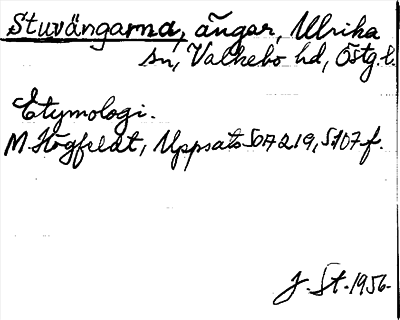 Stuvängarna, ängar, Ulrika
sn, Valkebo hd, Östg. l.
Etymologi.
M. Högfeldt, Uppsats SOA 219, S. 107 f.
J. St. 1956.